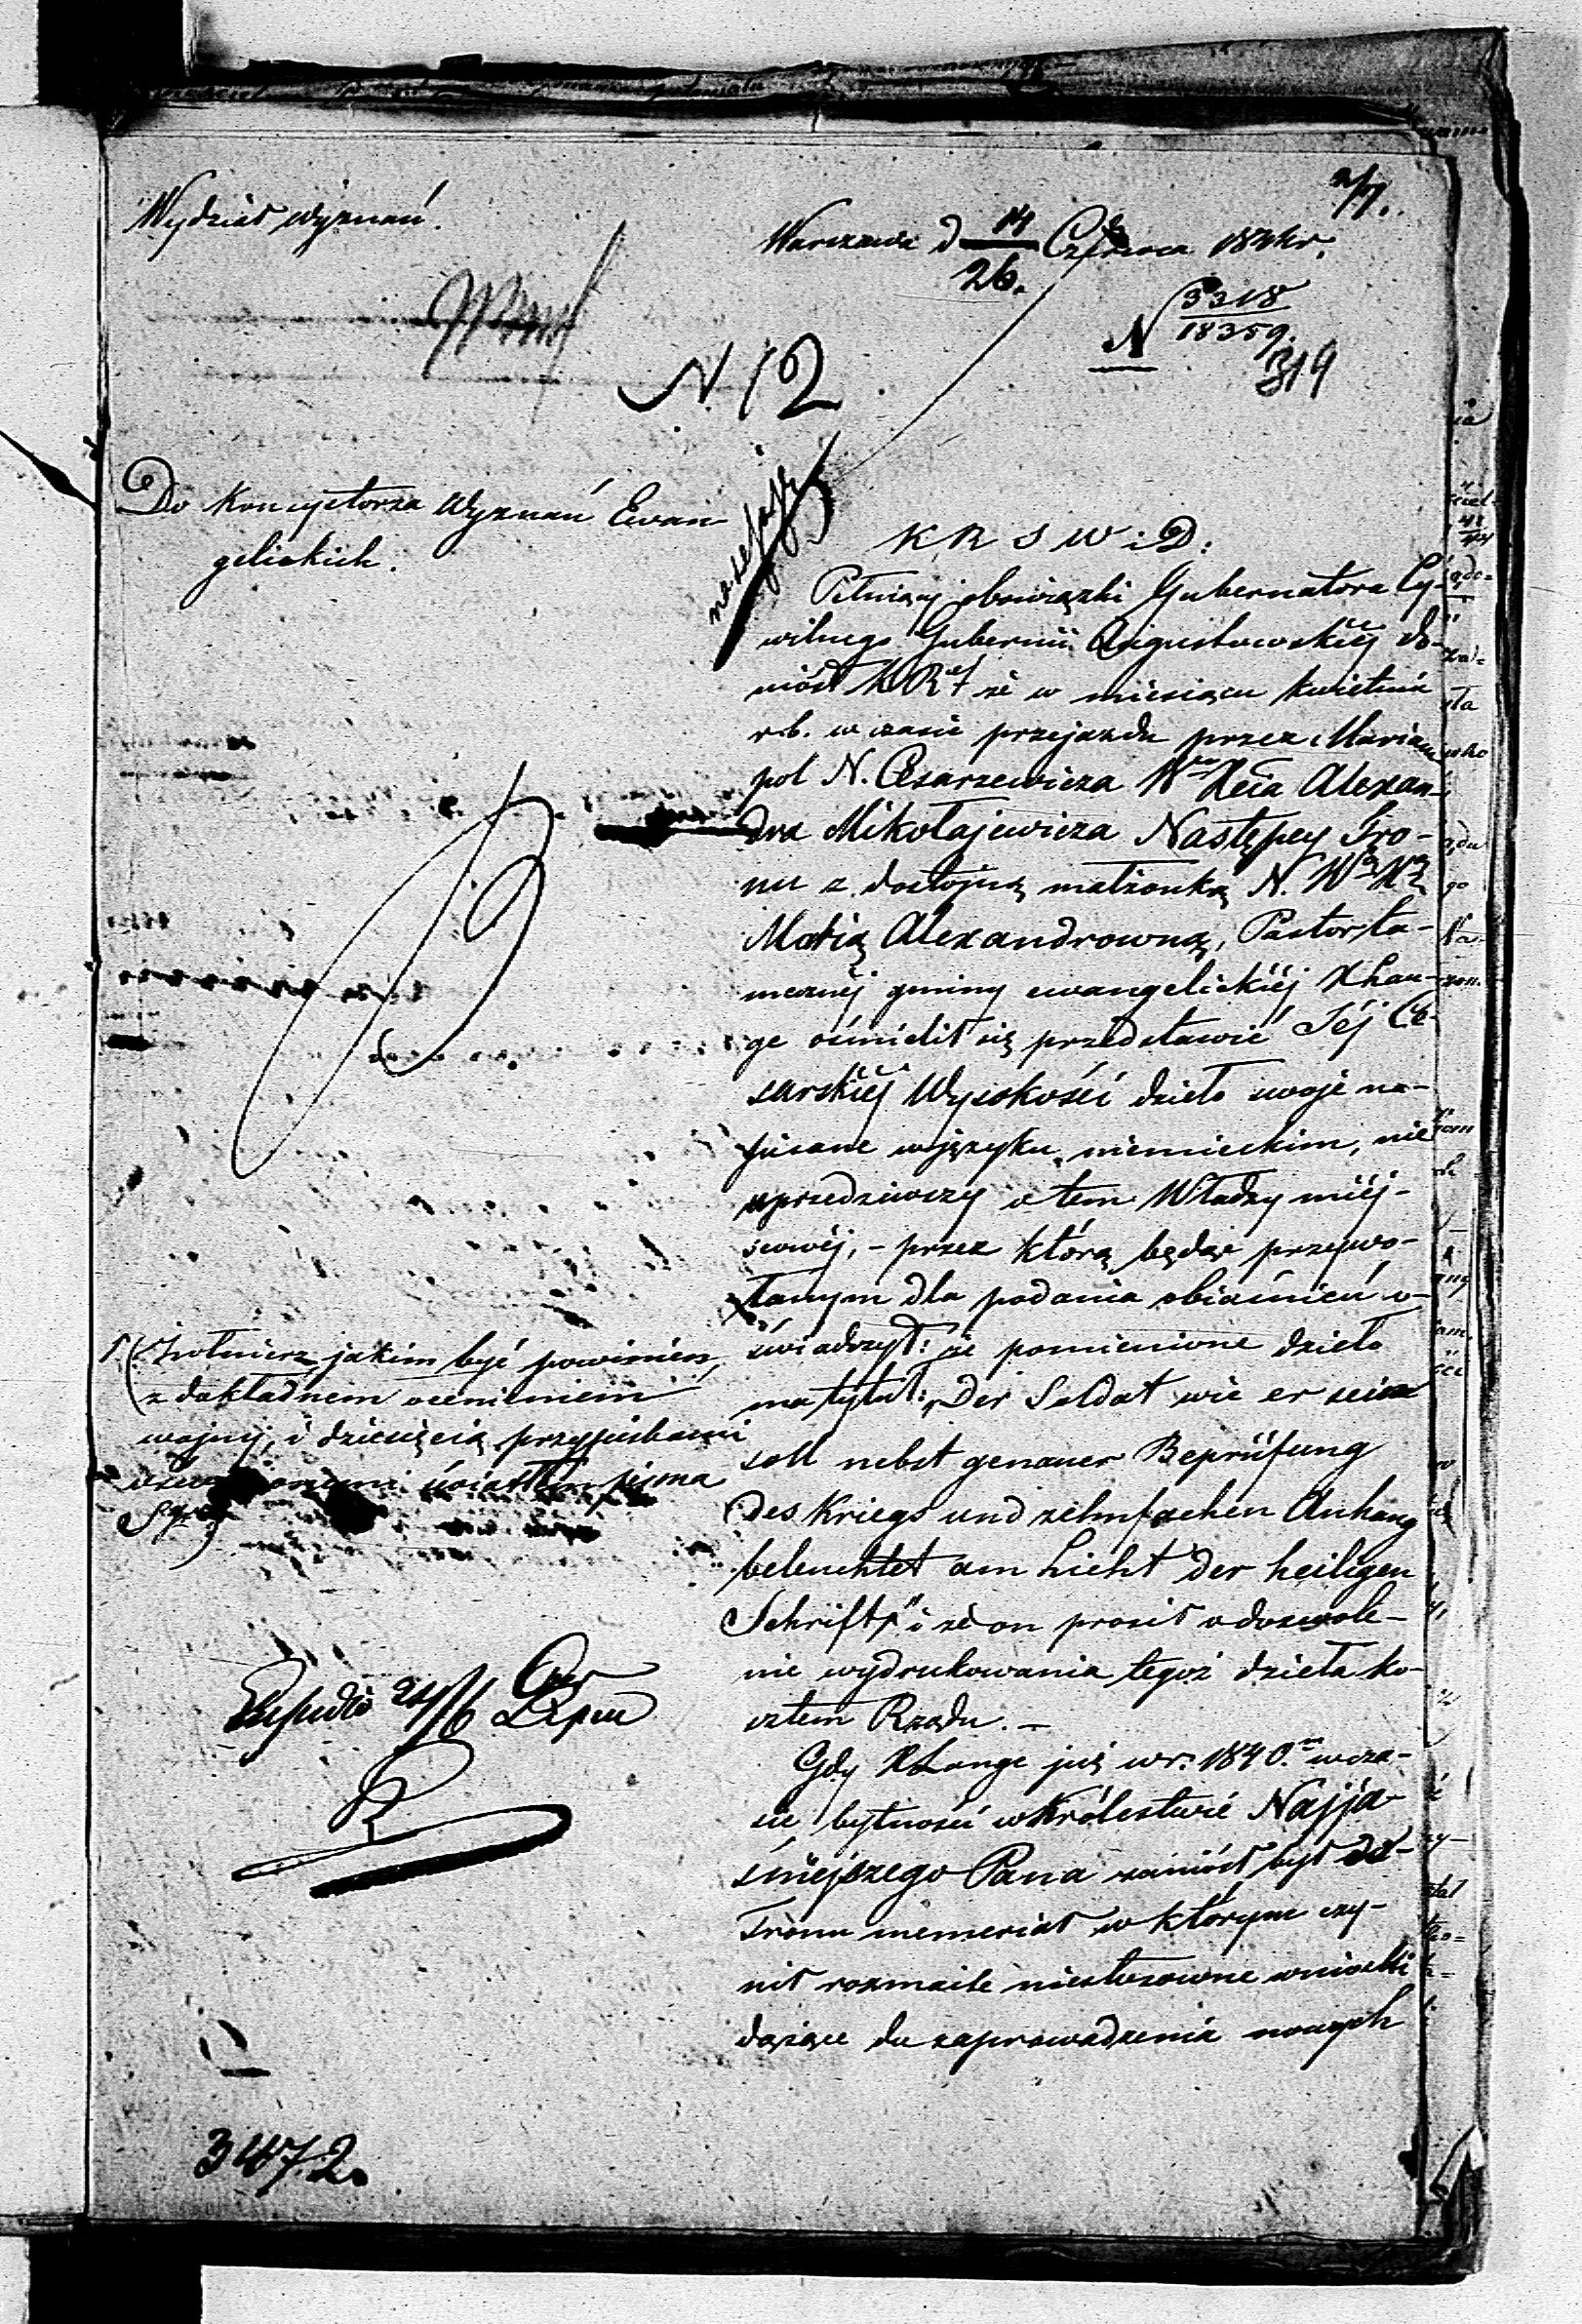 Wydział Wyznań.
Warszawa d 14/26. Czerwca 184 r.
N 3318/18359.
319
N. 12
Do Konsystorza Wyznań Ewan-
gelickich.
K R S W i D:
Pełniący obowiązki Gubernatora Cy-
wilnego Gubernii Augustowskiéj do-
niósł że w miesiącu kwietniu
r.b. w czasie przejazdu przez Mariam
pol N. Cesarzewicza Wgo Xcia Alexan-
dra Mikołajewicza Następcy Tro-
nu z dostojną małżonką N. Wą Xą
Marią Alexandrowną, Pastor ta-
mecznéj gminy ewangelickiéj X Lan-
ge ośmielił się przedstawić Jéj Ce-
sarskiéj Wysokości dzieło swoje na-
pisane w języku niemieckim, nie
uprzedziwszy o tem Władzy miéj-
scowéj, - przez którą będąc przywo-
łanym dla podania obiaśnień o-
świadczył: że pomienione dzieło
ma tytuł: „Der Soldat wie er sein
soll nebst genauer Beprüfung
des Kriegs und zehnfachen Anhang
beleuchtet am Licht der heiligen
Schrift" i że on prosił o dozwole-
nie wydrukowania tegoż dzieła ko-
sztem Rządu. -
Gdy X Lange już w r. 1840.m w cza-
sie bytności w Królestwie Najja-
śniejszego Pana zaniósł był do
Tronu memoriał w którym czy-
nił rozmaite niestosowne wnioski
dążące do zaprowadzenia nowych
(Żołnierz jakim być powinien,
z dokładnem ocenieniem
wojny, i dziesięcią przypiskami
światłem pisma
Sgo)
Expedio 24/6
3472.